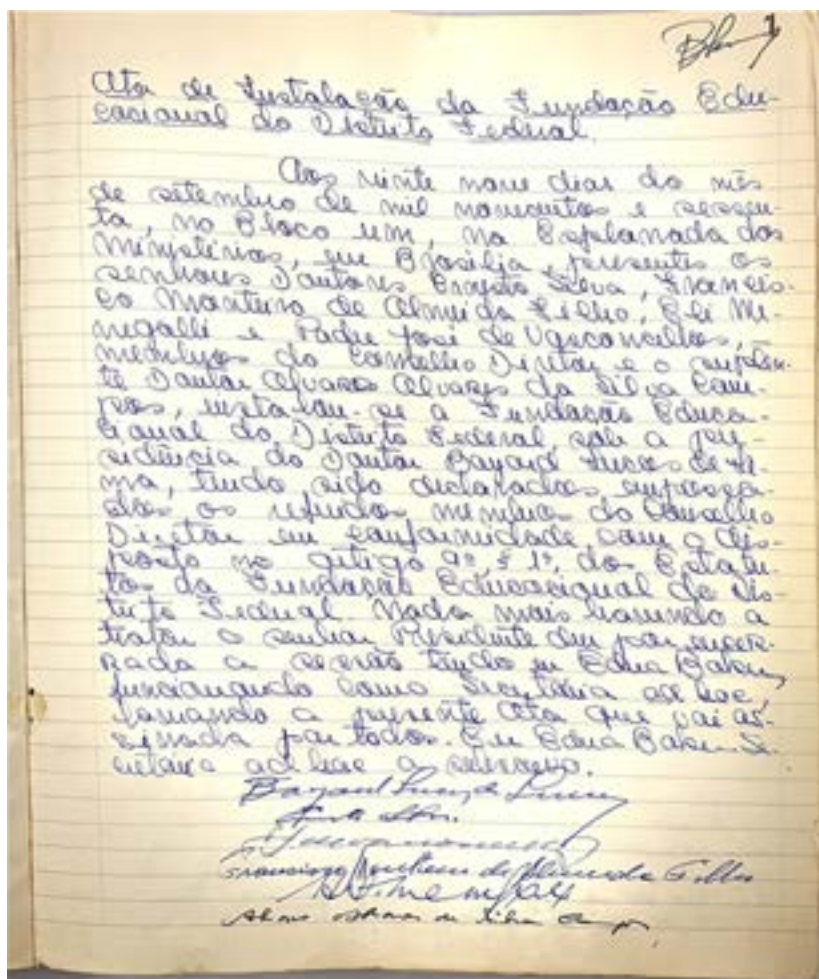 1
Ata de Instalação da Fundação Edu-
cacional do Distrito Federal.
Aos vinte nove dias do mês
de setembro de mil novecentos e sessen-
ta, no Bloco um, na Esplanada dos
Ministérios, em Brasília, presentes os
senhores Doutores Ernesto Silva, Francis-
co Monteiro de Almeida Filho, Eli Me-
negalli e Padre José de Vasconcellos,
membros do Conselho Diretor e o suplen-
te Doutor Alvaro Alvares da Silva Cam-
pos, instalou-se a Fundação Educa-
cional do Distrito Federal, sob a pre-
sidência do Doutor Bayard Lucas de Li-
ma, tendo sido declarados empossa-
dos os referidos membros do Conselho
Diretor em conformidade com o dis-
posto no artigo 9º, § 1º, dos Estatu-
tos da Fundação Educacional do Dis-
trito Federal. Nada mais havendo a
tratar o senhor Presidente deu por encer-
rada a sessão tendo eu Edna Baker,
funcionando como Secretária ad hoc,
a presente Ata que vai as-
sinada por todos. Eu Edna Baker Se-
cretária ad hoc a
Bayard Lucas de Lima
Francisco Monteiro de Almeida Filho
Alvaro Alvares da Silva Campos